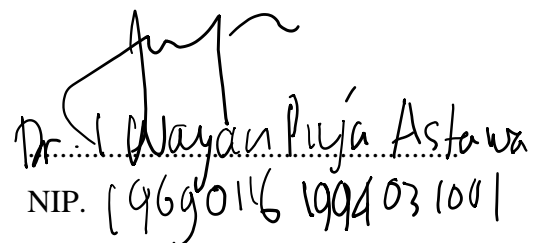 Dr. I Wayan Puja Astawa
NIP. 19690116 199403 1001